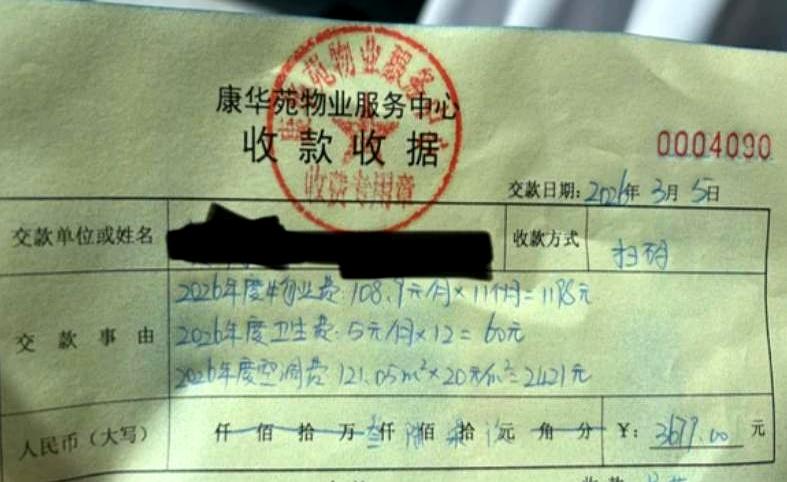 康华苑物业服务中心
收款收据
收费专用章
0004090
交款日期:2026年3月5日
交款单位或姓名
收款方式 扫码
交款事由
2026年度物业费:108.9元/月×11个月=1198元
2026年度卫生费:5元/月×12=60元
2026年度空调费 121.05m²×20元/m²=2421元
人民币(大写) 仟佰拾万叁仟陆佰柒拾 元角分 ¥:3679.00元
收款